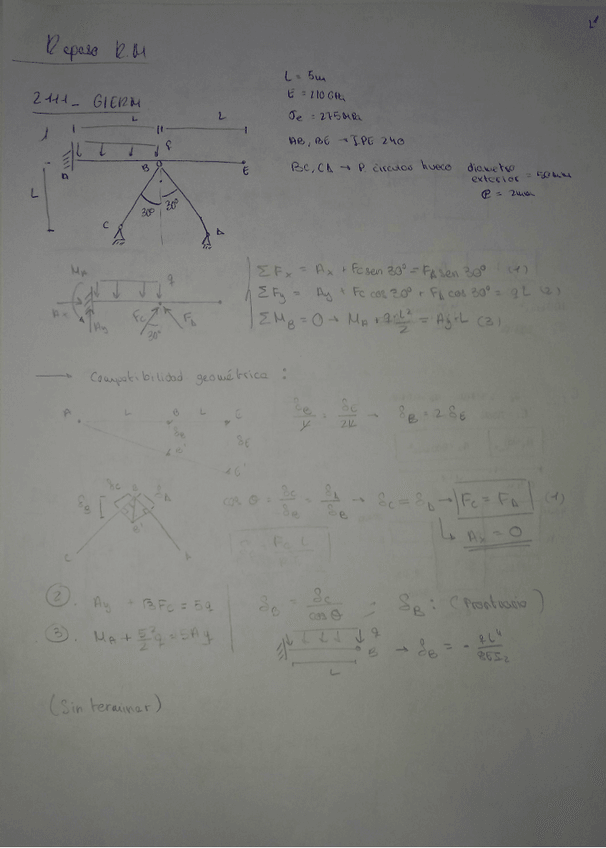 1º
Repaso R.M
L = 5m
2111_ GIERM
E = 210 GPa
σe = 275 MPa
AB, BE → IPE 240
BC, CD → P. circular hueco diametro exterior = 50mm
e = 2mm
L L
q
A B E
L
30° 30°
C D
MA q
Ax Ay FC FD
30°
ΣFx = Ax + Fc sen 30° = FD sen 30° (1)
ΣFy = Ay + Fc cos 30° + FD cos 30° = qL (2)
ΣMB = 0 → MA + q·L²/2 = Ay·L (3)
→ Compatibilidad geométrica :
A L B L E
δB δE
δB/L = δE/2L → δB = 2 δE
δC δD
δB
B'
C
cos θ = δC/δB = δD/δB → δC = δD → FC = FD (4)
↳ Ax = 0
②. Ay + √3 FC = 5q
δB = δC/cos θ ; δB : (Prontuario)
③. MA + 5²/2 q = 5Ay
q
B → δB = - qL⁴/8EIz
L
(Sin terminar)